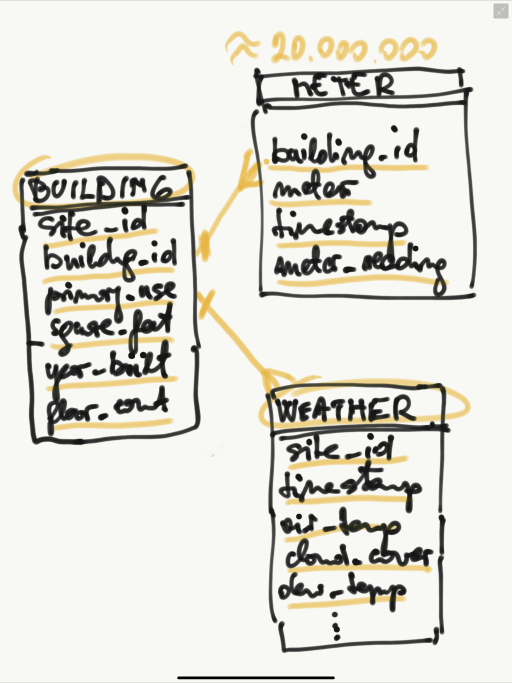 ≈ 20.000.000
METER
building_id
meter
timestamp
meter_reading
BUILDING
site_id
building_id
primary_use
square_feet
year_built
floor_count
WEATHER
site_id
timestamp
air_temp
cloud_cover
dew_temp
⋮